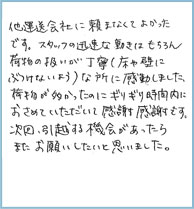 他運送会社に頼まなくてよかった
です。スタッフの迅速な動きはもちろん
荷物の扱いが丁寧(床や壁に
ぶつけないような所に感動しました、
荷物が多かったのにギリギリ時間内に
おさめていただいて感謝感謝です。
次回、引越する機会があったら
またお願いしたいと思いました。